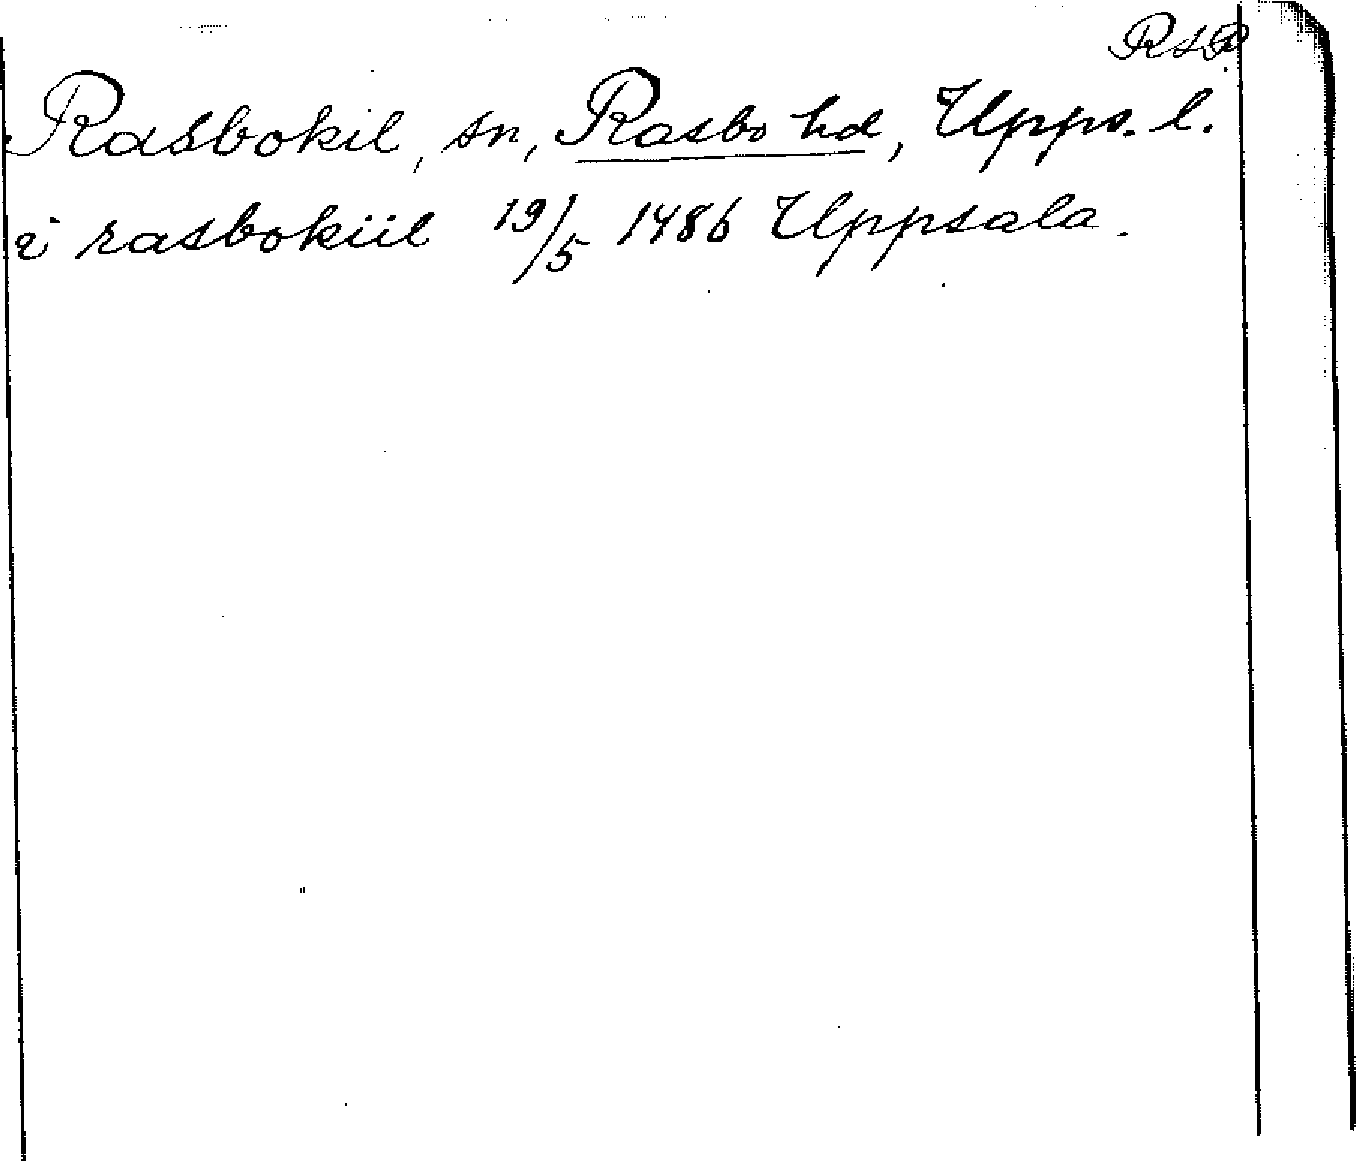 RSP.
Rasbokil, sn, Rasbo hd, Upps. l.
i rasbokiil 19/5 1486 Uppsala.